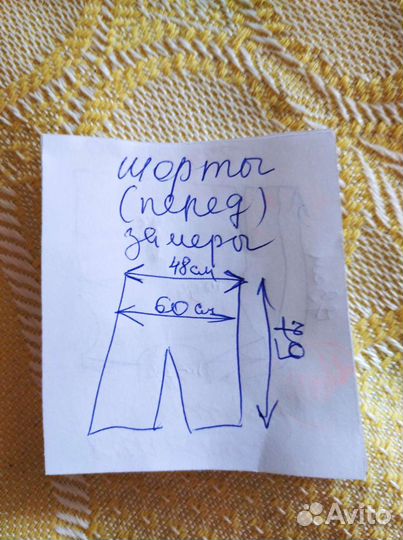 шорты
(перед)
замеры
48см
60см
Avito